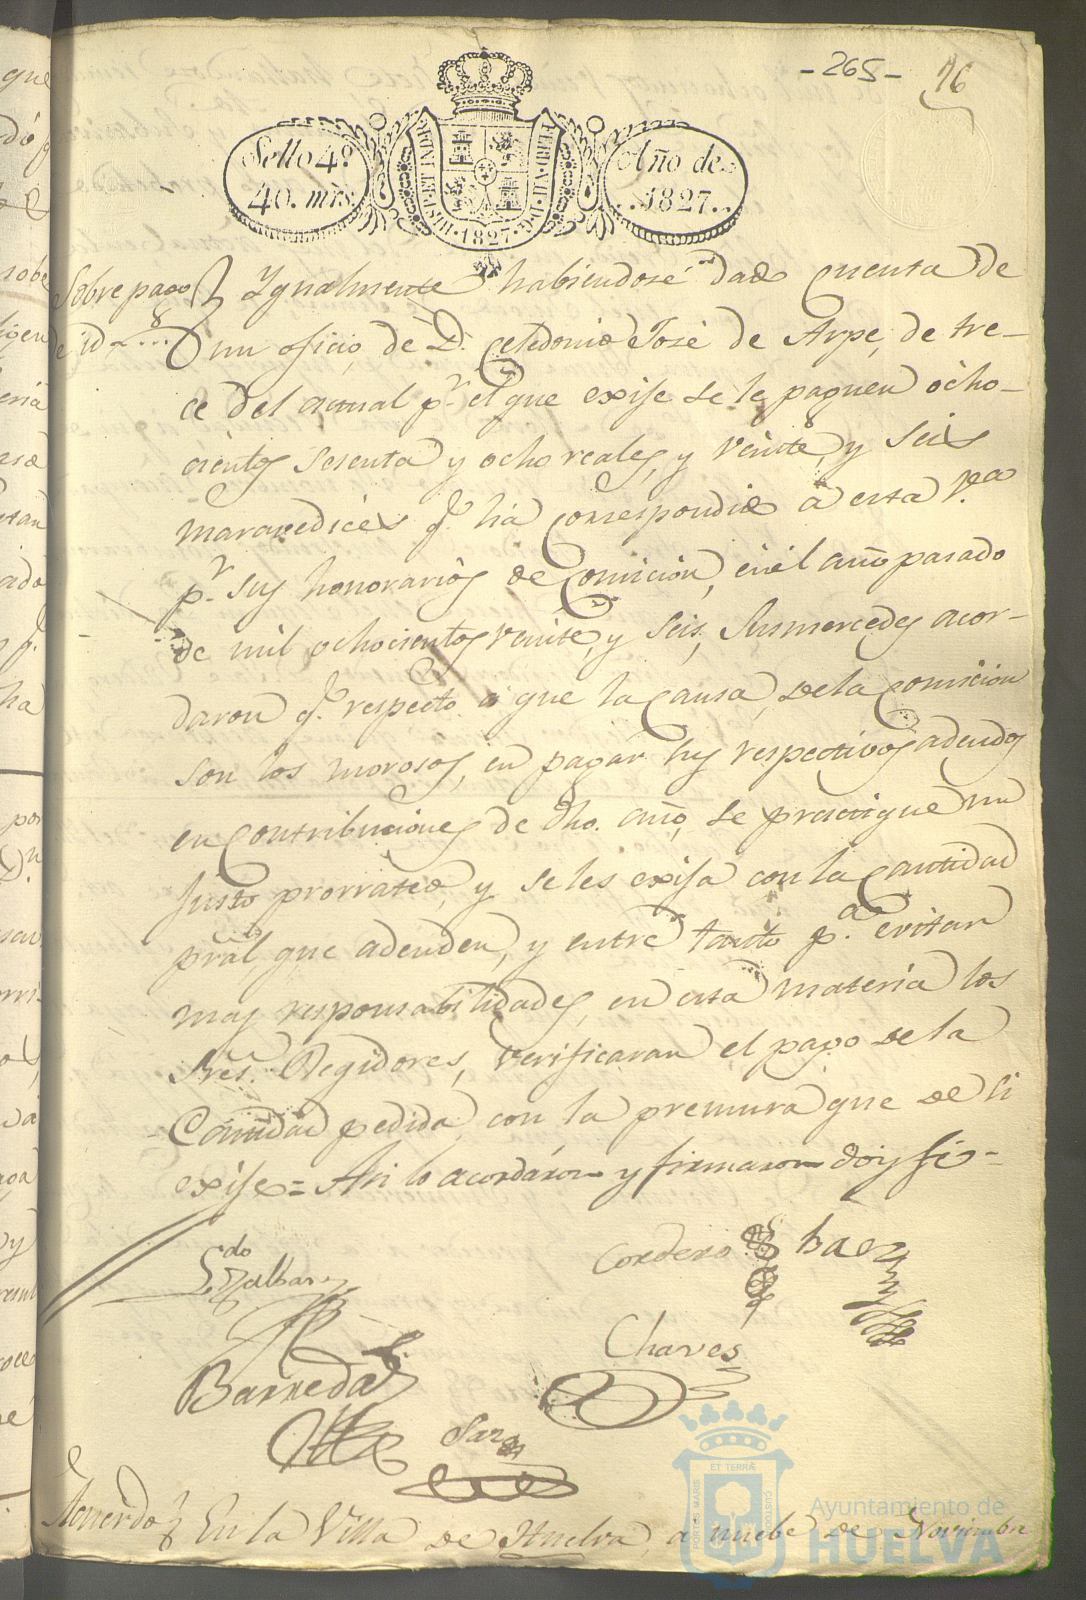 -265-
76
Sello 4º.
40. mrs.
HISP. ET IND. R.
FERD. VII. D. G.
·1827·
Año de
..1827..
Sobre pago
de id.
Ygualmente habiendose dado cuenta de
un oficio, de D. Celedonio José de Arpe, de tre-
ce del actual pr. el que exije se le paguen ocho-
cientos sesenta y ocho reales, y veinte, y seis
maravedices q. ha correspondido a esta Va.
pr. sus honorarios de Comicion, en el año pasado
de mil ochocientos veinte, y seis, Susmercedes acor-
daron q. respecto a que la Causa, de la Comicion
son los morosos, en pagar sus respectivos adeudos
en Contribuciones de dho. año, se practique un
justo prorrateo, y se les exija con la Cantidad
pral que adeuden, y entre tanto pa. evitar
mas responsabilidades, en esta materia los
Sres. Regidores, verificaran el pago de la
Cantidad pedida, con la premura que de si
exije = Asi lo acordaron y firmaron doy fe-
Cordero
Baez
Ldo
Chaves
Barreda
Acuerdo
En la Villa de Huelva, a nuebe de Noviembre
PORTUS MARIS
ET TERRÆ
CUSTODIA
Ayuntamiento de
HUELVA